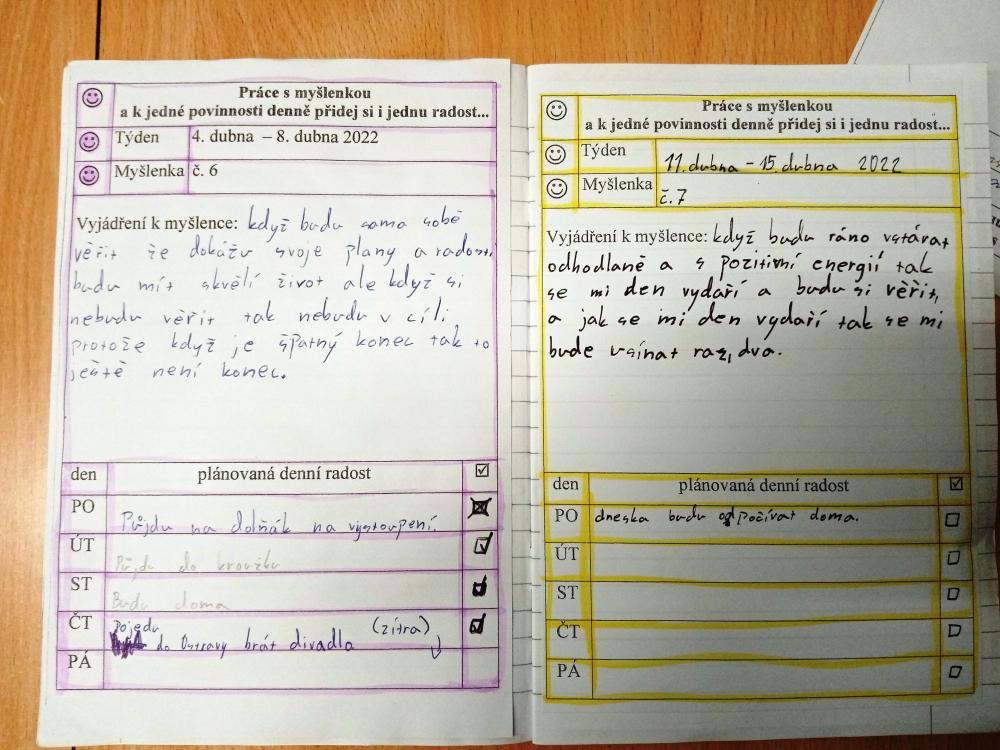 Práce s myšlenkou
a k jedné povinnosti denně přidej si i jednu radost...
Týden 4. dubna – 8. dubna 2022
Myšlenka č. 6
Vyjádření k myšlence: když budu sama sobě
věřit že dokážu svoje plany a radosti
budu mít skvělí život ale když si
nebudu věřit tak nebudu v cíli
protože když je špatný konec tak to
ještě není konec.
den plánovaná denní radost
PO Půjdu na dolňák na vystoupení.
ÚT Půjdu do kroužku
ST Budu doma
ČT Pojedu (zítra)
do Ostravy hrát divadlo
PÁ
Práce s myšlenkou
a k jedné povinnosti denně přidej si i jednu radost...
Týden 11. dubna – 15. dubna 2022
Myšlenka č. 7
Vyjádření k myšlence: když budu ráno vstávat
odhodlaně a s pozitivní energií tak
se mi den vydaří a budu si věřit,
a jak se mi den vydaří tak se mi
bude usínat raz, dva.
den plánovaná denní radost
PO dneska budu odpočívat doma.
ÚT
ST
ČT
PÁ